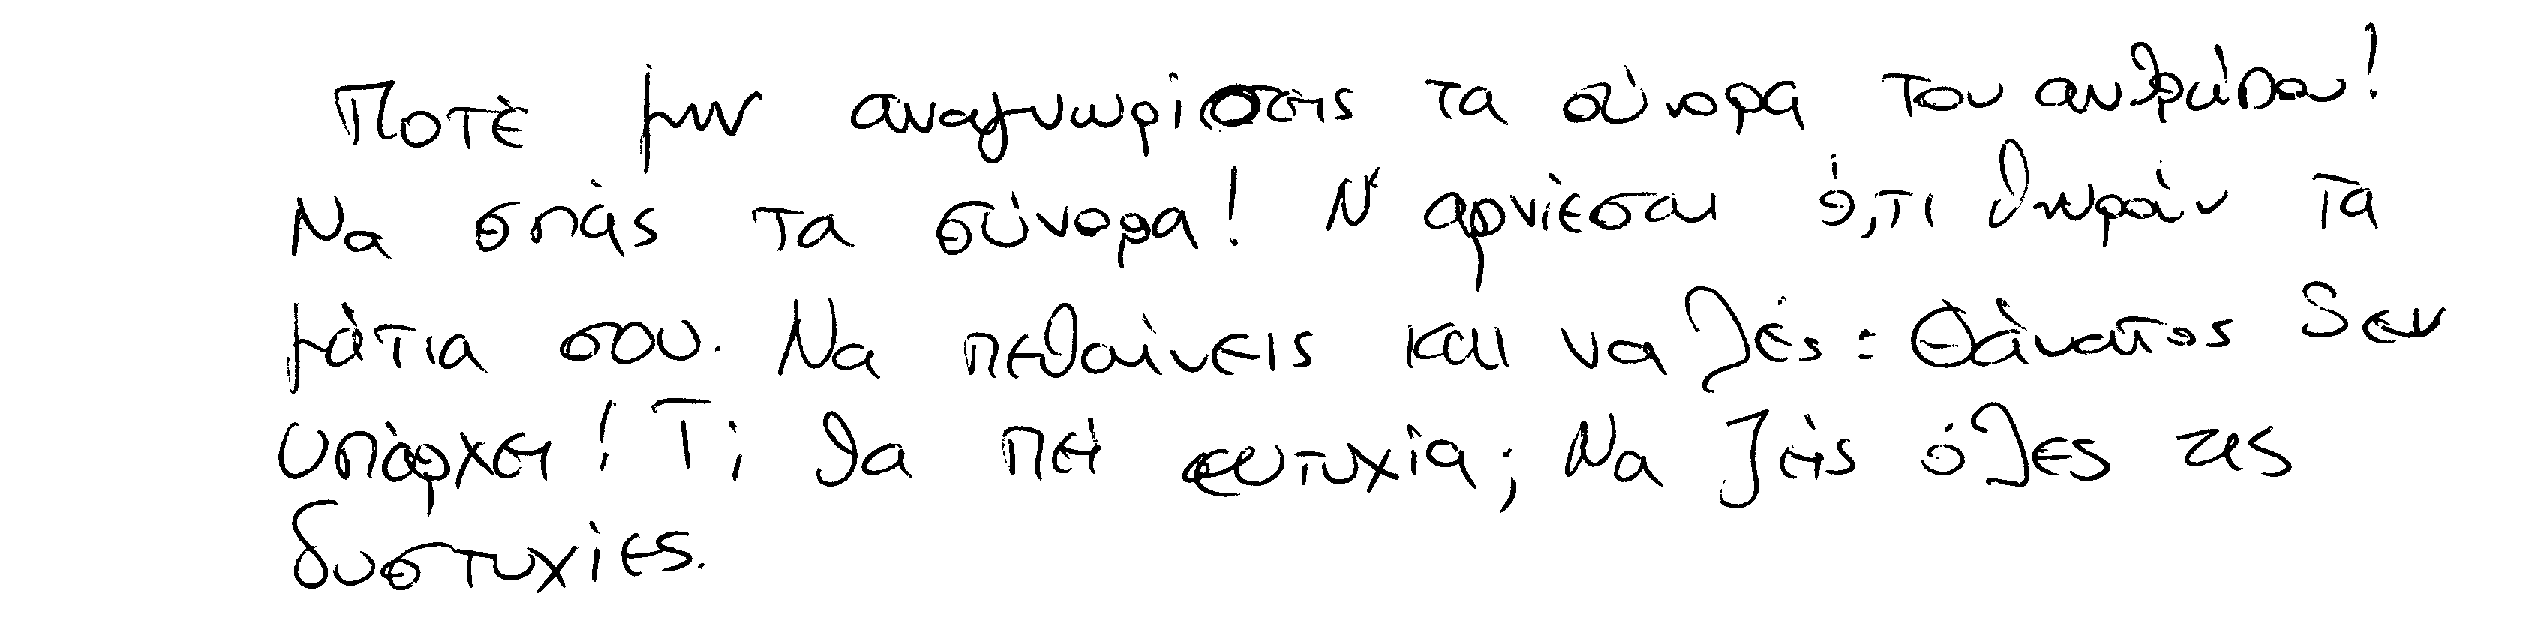 Ποτέ μην αναγνωρίσεις τα σύνορα του ανθρώπου!
Να σπάς τα σύνορα! Ν' αρνιέσαι ό,τι θωράν τα
μάτια σου. Να πεθαίνεις και να λές: Θάνατος δεν
υπάρχει! Τι θα πεί ευτυχία; Να ζείς όλες τις
δυστυχίες.